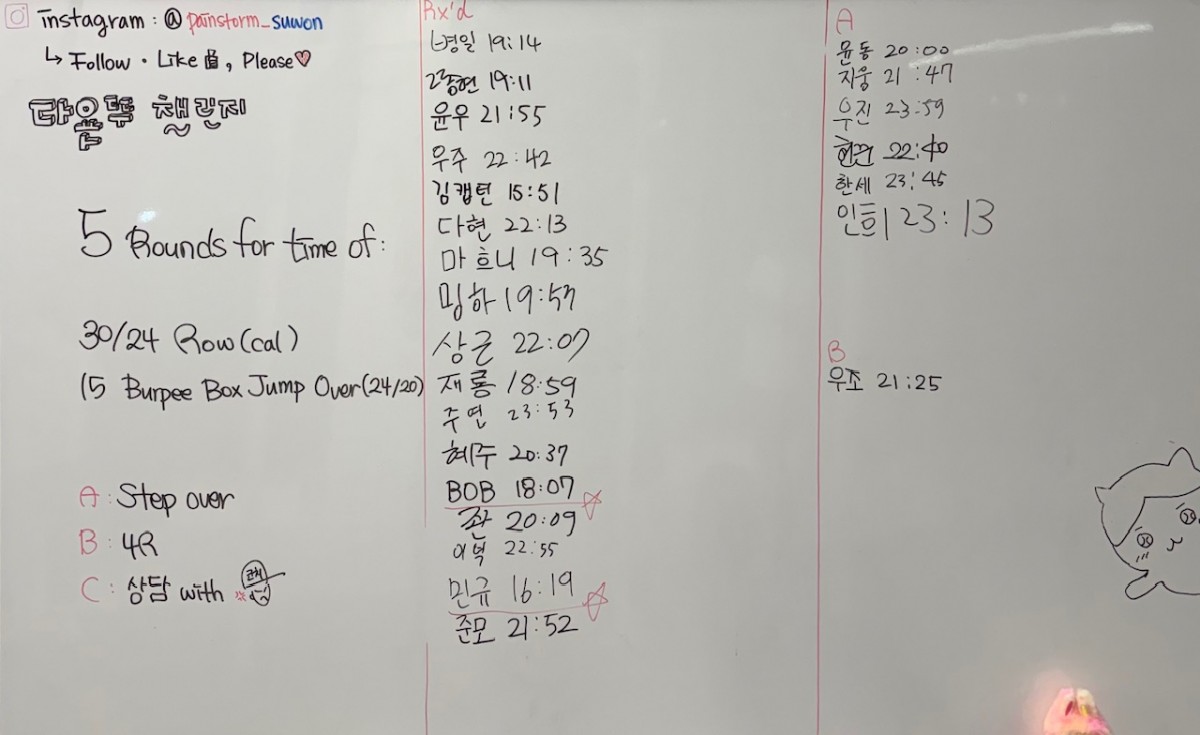 instagram : @painstorm_suwon
↳ Follow · Like, Please♡
다음뚜 챌린지
5 Rounds for time of:
30/24 Row(cal)
15 Burpee Box Jump Over(24/20)
A : Step over
B : 4R
C : 상담 with
Rx'd
병일 19:14
고종현 19:11
윤우 21:55
우주 22:42
김캡틴 15:51
다현 22:13
마흐니 19:35
밍하 19:57
상근 22:07
재롱 18:59
주연 23:53
혜주 20:37
BOB 18:07
존 20:09
22:55
민규 16:19
준모 21:52
A
윤동 20:00
지웅 21:47
우진 23:59
22:40
한세 23:45
인흐 | 23:13
B
우조 21:25